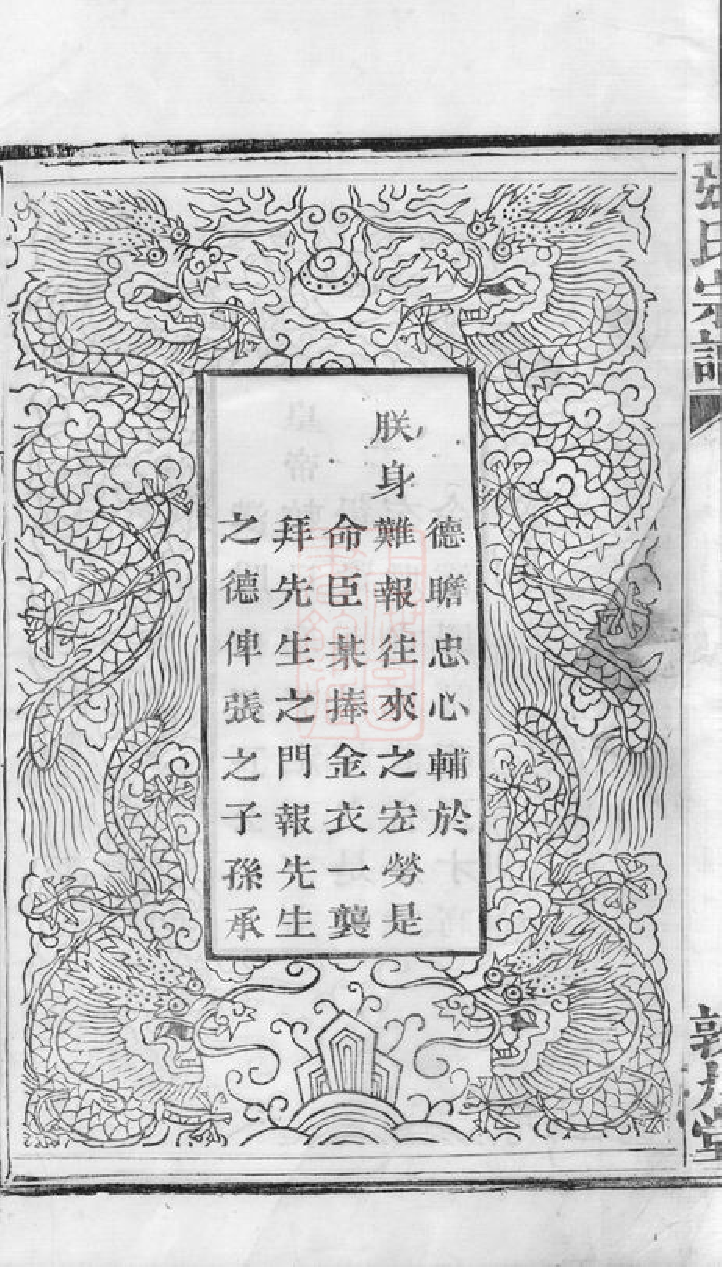 德瞻忠心輔於
朕身難報往來之宏勞是
命臣某捧金衣一襲
拜先生之門報先生
之德俾張之子孫承
張氏宗譜
敦厚堂